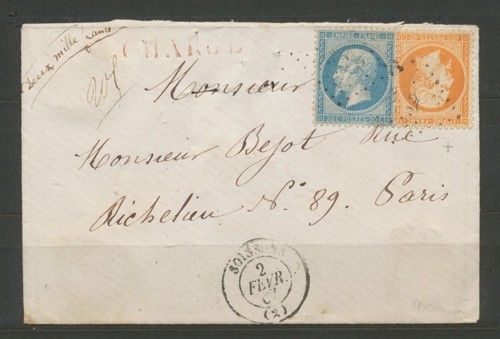 deux mille francs
CHARGÉ
205
Monsieur
EMPIRE FRANC
20 C POSTES 20 C
Monsieur Bejot Rue
Richelieu N° 89. Paris
SOISSONS
2
FEVR.
(2)